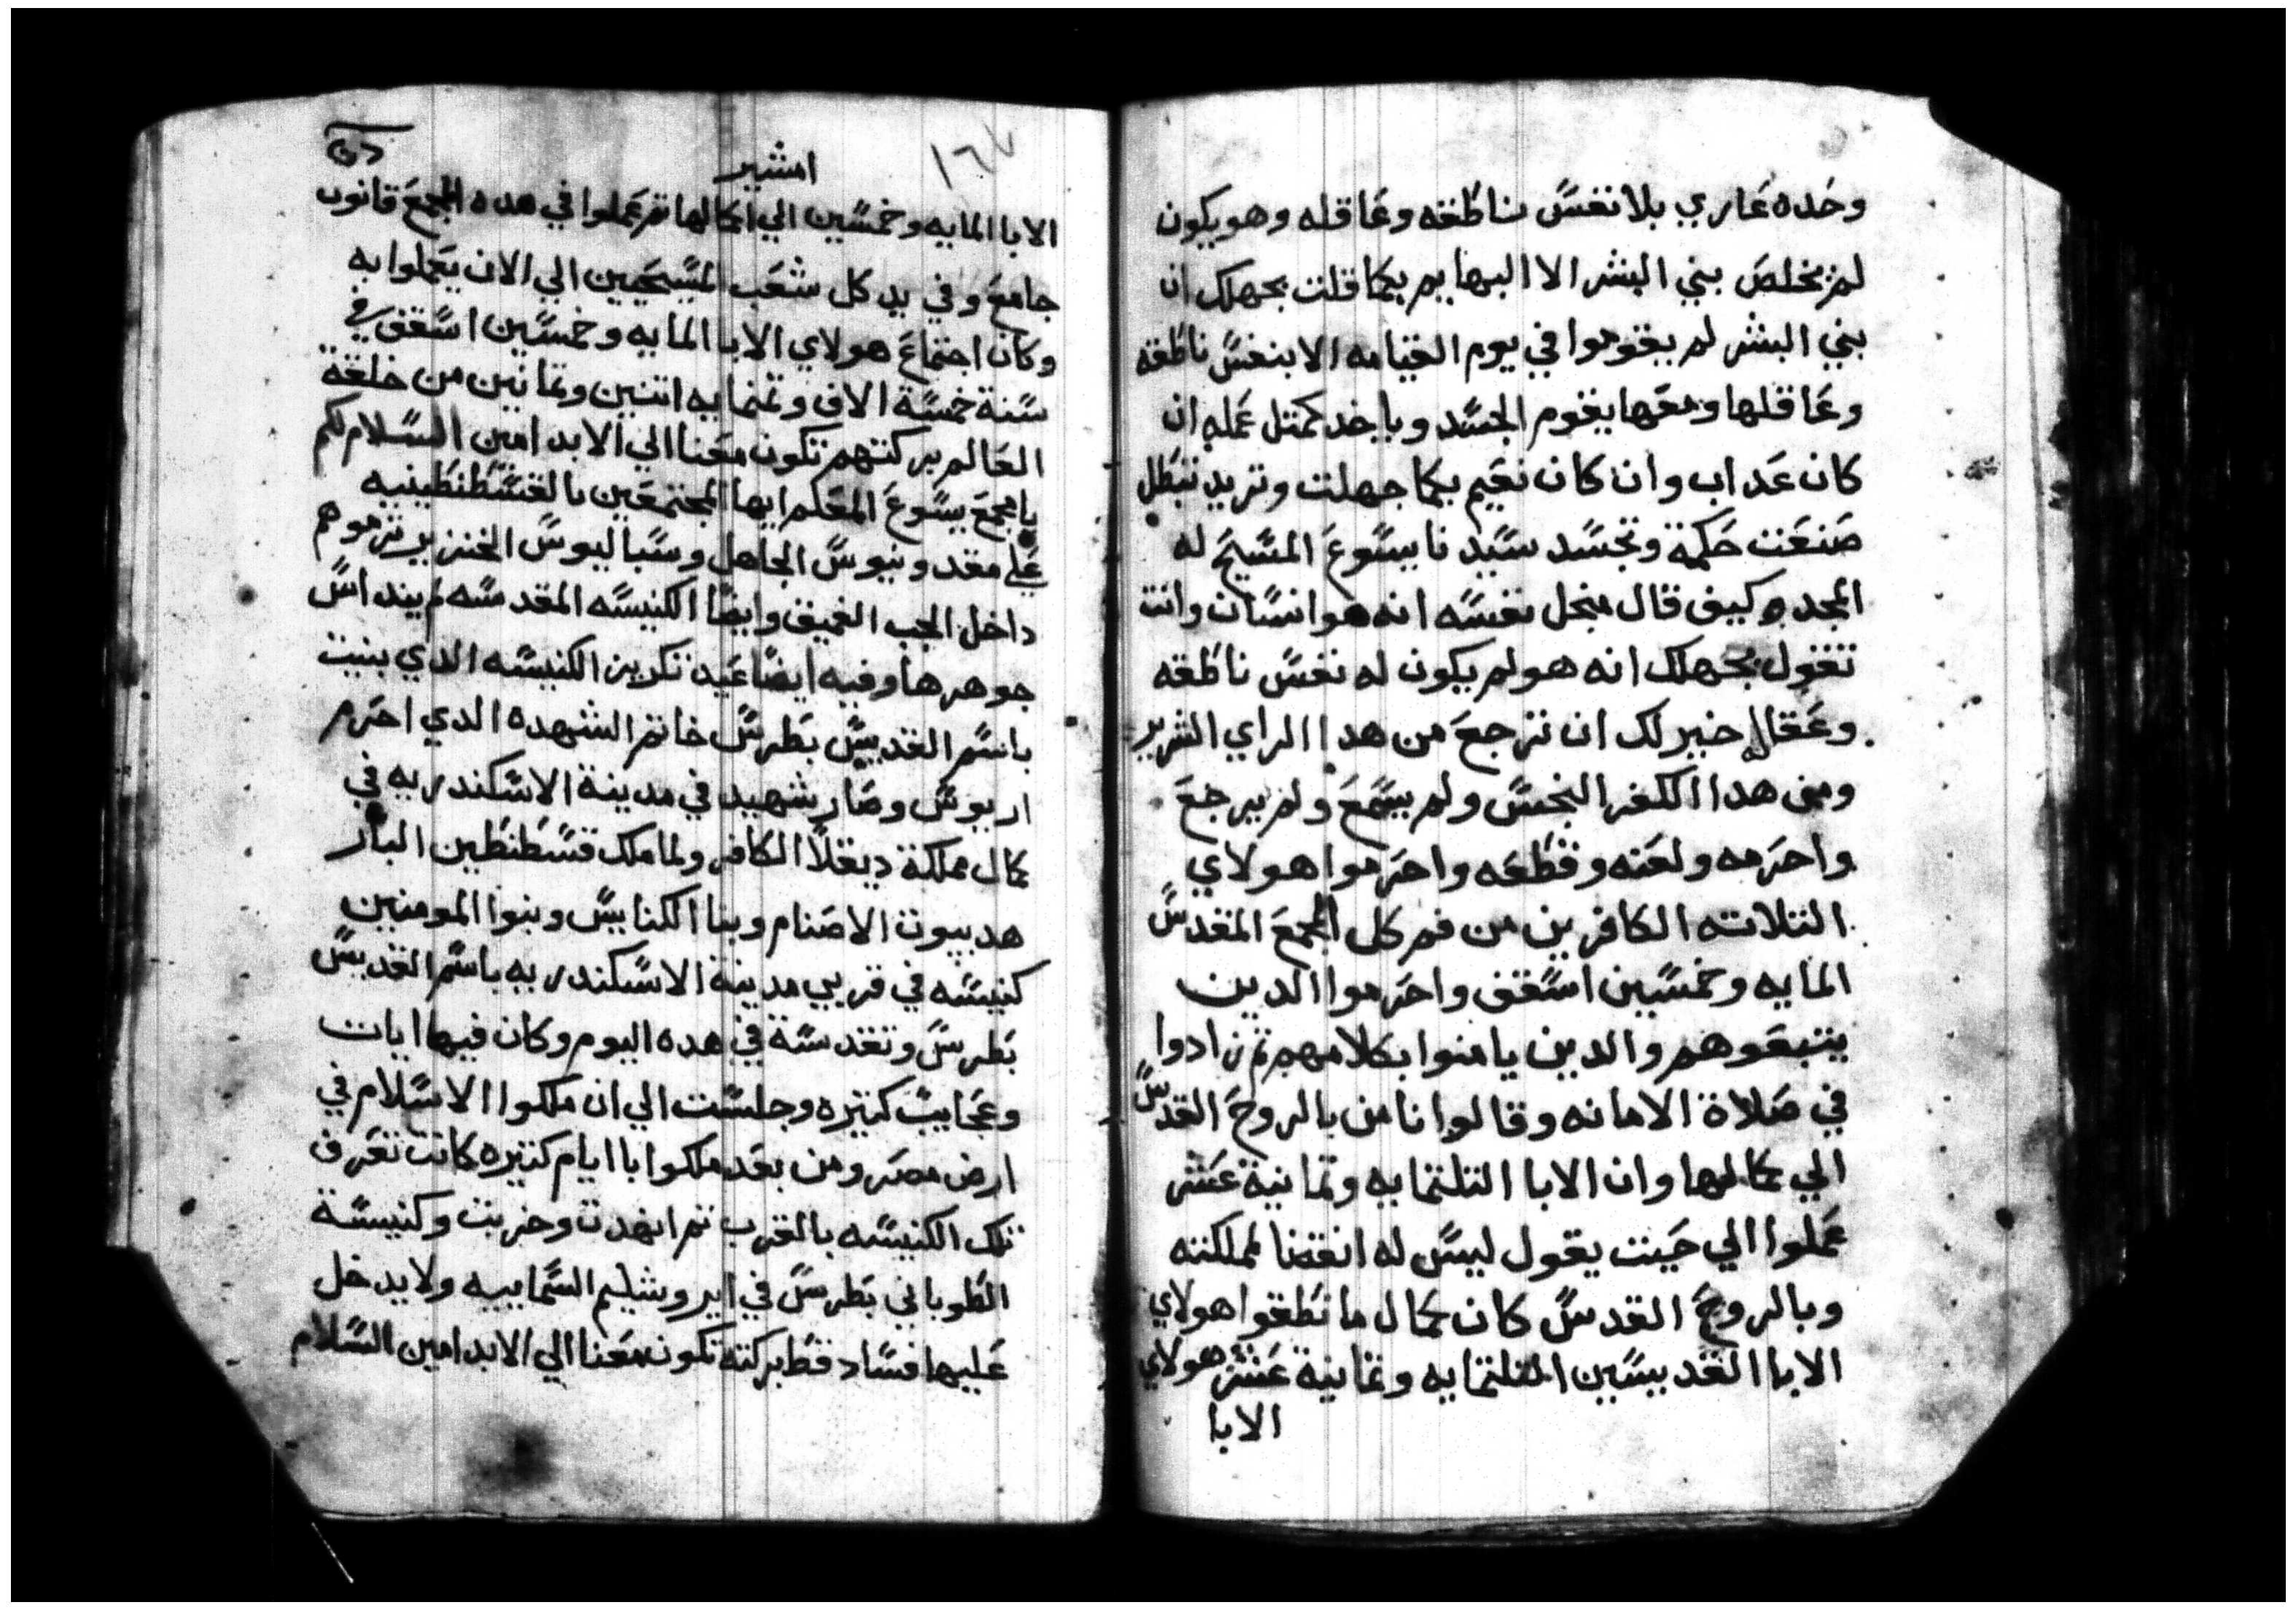 وحده عاري بلا نفس ناطقه وعاقله وهو يكون
لم يخلص بني البشر الا البهايم بكما قلت بجهلك ان
بني البشر لم يقوموا في يوم القيامه الا بنفس ناطقه
وعاقلها ومعها يقوم الجسد وياخد كمتل عمله ان
كان عداب وان كان نعيم بكما جهلت وتريد تبطل
صنعت حكمة وتجسد سيدنا يسوع المسيح له
المجد وكيف قال منجل نفسه انه هو انسان وانت
تقول بجهلك انه هو لم يكون له نفس ناطقه
وعقال خير لك ان ترجع من هدا الراي الشرير
ومن هدا الكفر النجس ولم يسمع ولم يرجع
واحرمه ولعنه وقطعه واحرموا هولاي
التلاته الكافرين من فم كل المجمع المقدس
المايه وخمسين اسقف واحرموا الدين
يتبعوهم والدين يامنوا بكلامهم تم زادوا
في صلاة الامانه وقالوا نامن بالروح القدس
الي كمالها وان الابا التلتمايه وتمانية عشر
عملوا الي حيت يقول ليس له انقضا لمملكته
وبالروح القدس كان كمال ما نطقوا هولاي
الابا القديسين التلتمايه وتمانية عشر هولاي
الابا
١٦٧
امشير
الابا المايه وخمسين الي اكمالها تم عملوا في هده المجمع قانون
جامع وفي يد كل شعب المسيحيين الي الان يعملوا به
وكان اجتماع هولاي الابا المايه وخمسين اسقف في
سنة خمسة الاف وتمنمايه اتنين وتمانين من خلقة
العالم بركتهم تكون معنا الي الابد امين السلام لكم
يا مجمع يسوع المعلم ايها المجتمعين بالقسطنطينيه
علي مقدونيوس الجاهل وسباليوس الخنزير ترموهم
داخل الجب الغميق وايضا الكنيسه المقدسه لم ينداس
جوهرها وفيه ايضا عيد تكريز الكنيسه الدي بنيت
باسم القديس بطرس خاتم الشهده الدي احرم
اريوس وصار شهيد في مدينة الاسكندريه في
كمال مملكة ديقلا الكافر ولما ملك قسطنطين البار
هد بيوت الاصنام وبنا الكنايس وبنوا المومنين
كنيسه في قربي مدينة الاسكندريه باسم القديس
بطرس وتقدسة في هده اليوم وكان فيها ايات
وعجايب كتيره وجلست الي ان ملكوا الاسلام في
ارض مصر ومن بعد ملكوا با ايام كتيره كانت تعرف
تلك الكنيسه بالقرب تم انهدت وخربت وكنيسة
الطوباني بطرس في ايروشليم السماييه ولا يدخل
عليها فساد قط بركته تكون معنا الي الابد امين السلام